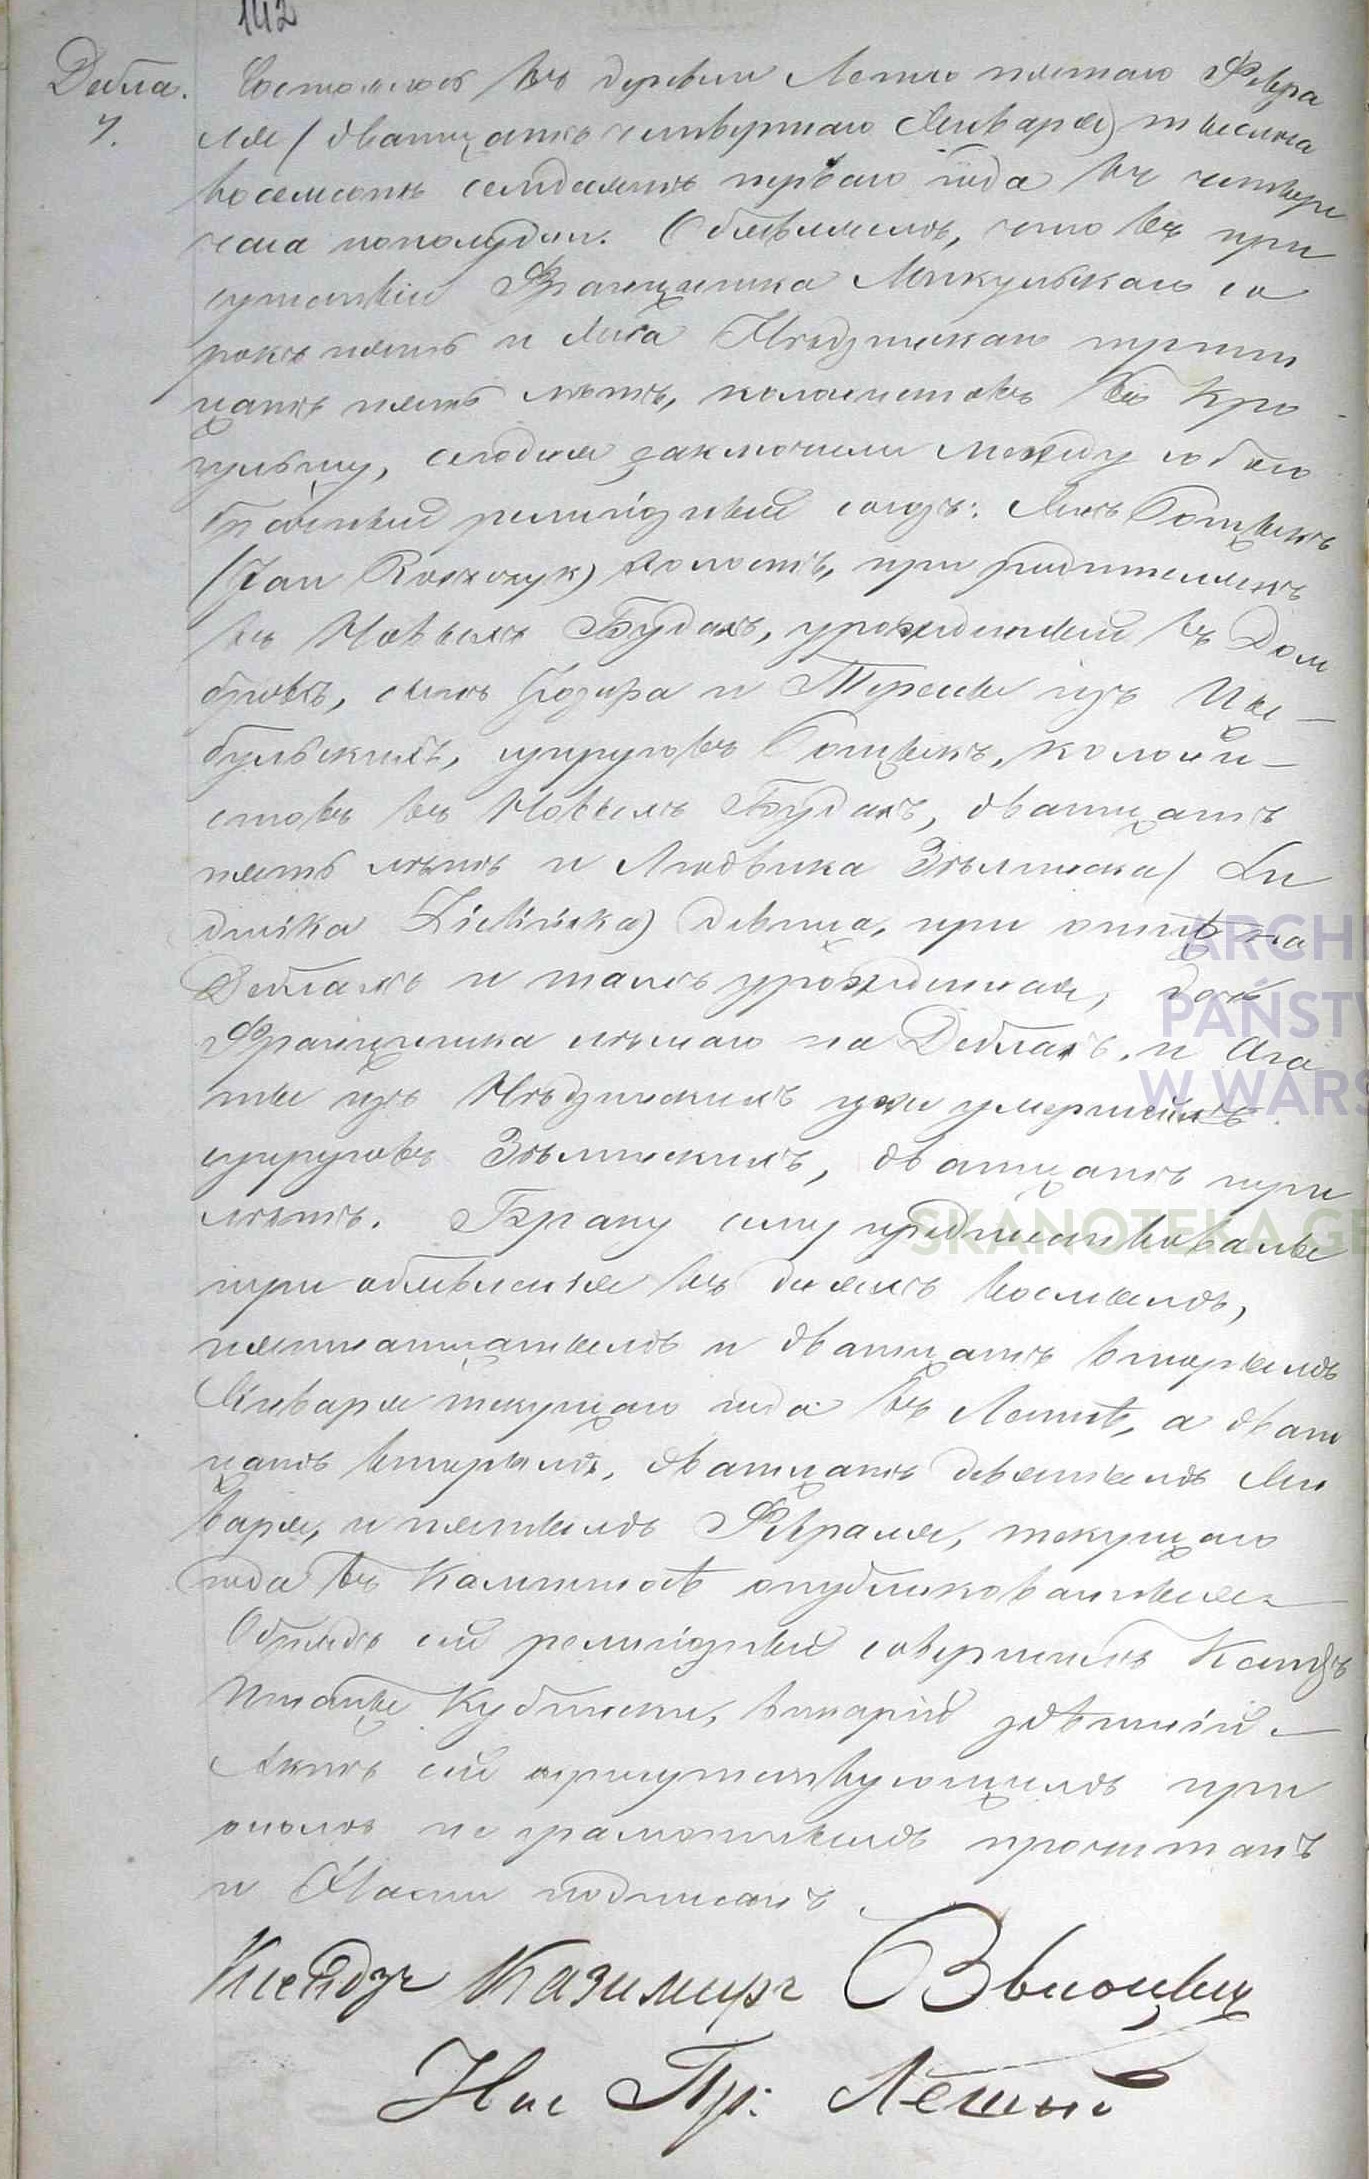 142
Дебла.
7.
Состоялось въ деревни Лешно пятаго Февра
ля (двадцать четвертаго Января) тысяча
восемсотъ семдесять перваго года въ четыре
часа пополудни. Объявляемъ, что въ при
сутствіи Францишка Микульскаго со
рокъ пять и Яна Нѣдзинскаго трит
цать пять лѣтъ, колонистовъ въ Кро
гульцу, сего дня заключили между собою
брачный религіозный союзъ: Янъ Рощыкъ
(Jan Roszczyk) холостъ, при родителяхъ
въ Новыхъ Будахъ, урожденный въ Дом
бровѣ, сынъ Іозефа и Тересы изъ Цы-
бульскихъ, супруговъ Рощыкъ, колони-
стовъ въ Новыхъ Будахъ, дватцать
пять лѣтъ и Людвика Зѣлинска (Lu
dwika Zielińska) дѣвица, при отцѣ на
Деблахъ и тамъ урожденная, дочь
Францишка лѣснаго на Деблахъ, и Ага
ты изъ Нѣдзинскихъ уже умершихъ
супруговъ Зѣлинскихъ, дватцать три
лѣтъ. Браку сему предшествовалы
три объявленія въ дняхъ восмымъ,
пятнатцатымъ и дватцать вторымъ
Января текущаго года въ Лешнѣ, а дват
цать вторымъ, дватцать девятымъ Ян
варя, и пятымъ Февраля, текущаго
года въ Кампиносѣ опубликованныя
Обрядъ сей религіозный совершилъ Ксендзъ
Игнацы Кубински, викарій здѣшній
Актъ сей присутствующимъ при
ономъ неграмотнымъ прочитанъ
и Нами подписанъ.
Ксендзъ Казимиръ
Нас. Пр. Лешно